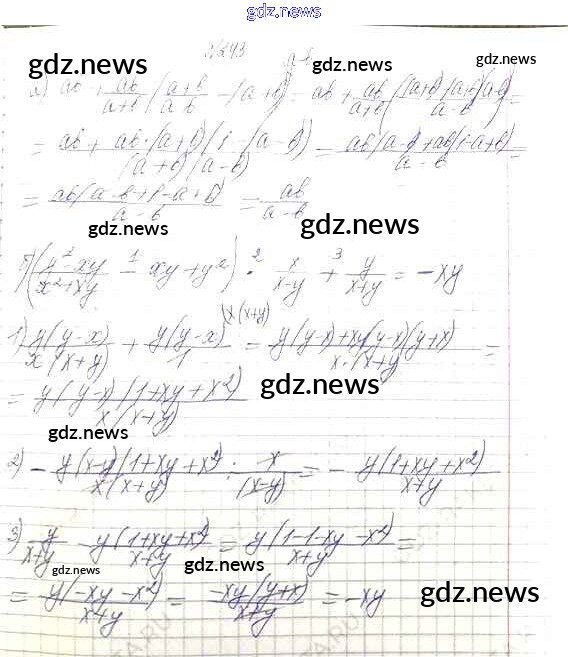 gdz.news
№243
а) ab + ab/(a+b) · ((a+b)/(a-b) - (a+b)) = ab + ab/(a+b) · ((a+b)-(a+b)(a-b))/(a-b) =
= ab + ab·(a+b)(1-(a-b))/((a+b)(a-b)) = (ab(a-b)+ab(1-a+b))/(a-b) =
= ab(a-b+1-a+b)/(a-b) = ab/(a-b)
gdz.news
б) ((y²-xy)/(x²+xy) - xy + y²) · x/(x-y) + y/(x+y) = -xy
1) y(y-x)/(x(x+y)) + y(y-x)/1 = (y(y-x)+xy(y-x)(y+x))/(x·(x+y)) =
= y(y-x)(1+xy+x²)/(x(x+y))
gdz.news
2) - y(x-y)(1+xy+x²)/(x(x+y)) : x/(x-y) = - y(1+xy+x²)/(x+y)
3) y/(x+y) - y(1+xy+x²)/(x+y) = y(1-1-xy-x²)/(x+y) =
= y(-xy-x²)/(x+y) = -xy(y+x)/(x+y) = -xy
gdz.news